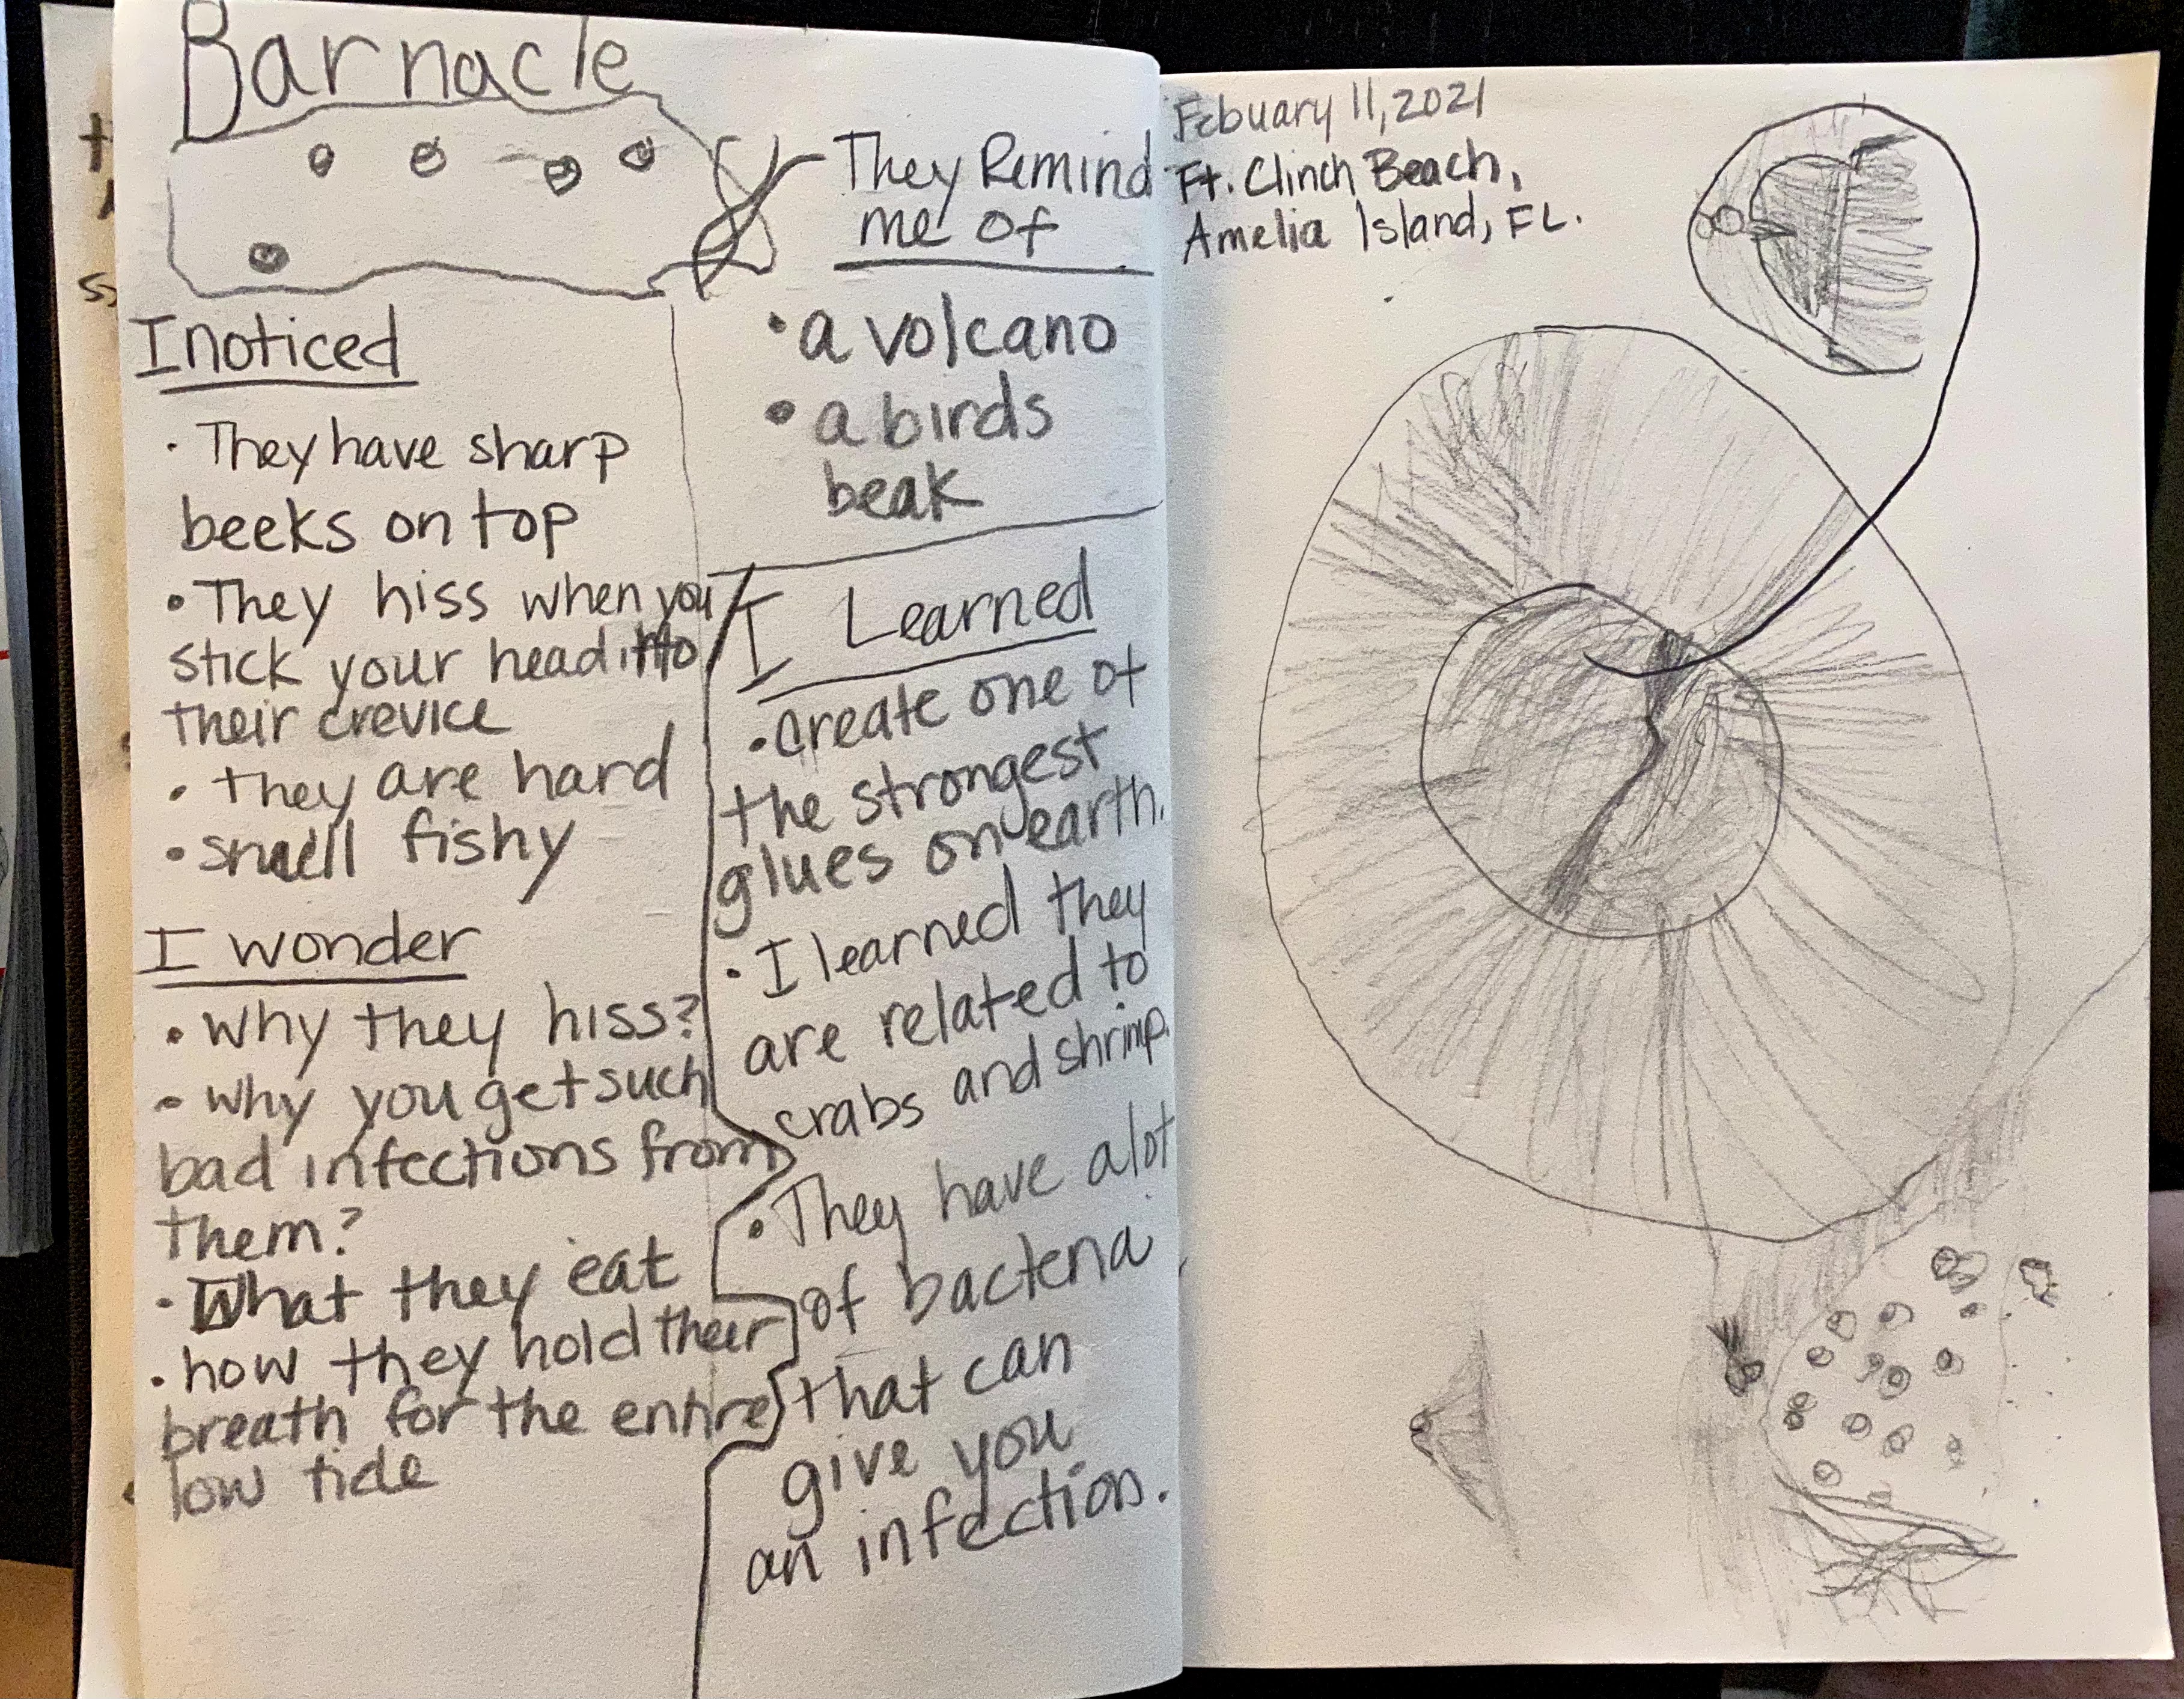 Barnacle
I noticed
• They have sharp
beeks on top
• They hiss when you
stick your head into
their crevice
• they are hard
• smell fishy
I wonder
• Why they hiss?
• Why you get such
bad infections from
them?
• What they eat
• how they hold their
breath for the entire
low tide
They Remind
me of
• a volcano
• a birds
beak
I Learned
• Create one of
the strongest
glues on earth.
• I learned they
are related to
crabs and shrimp.
• They have alot
of bacteria
that can
give you
an infection.
Febuary 11, 2021
Ft. Clinch Beach,
Amelia Island, FL.